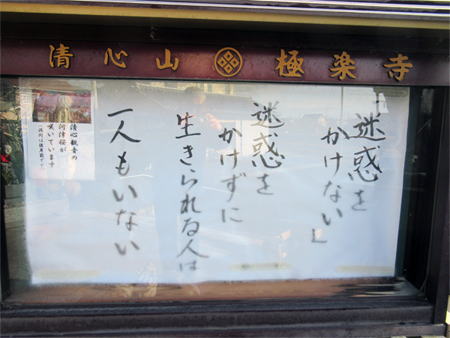 清心山 極楽寺
「迷惑を
かけない」
迷惑を
かけずに
生きられる人は
一人もいない
清心観音の
河津桜が
咲いています